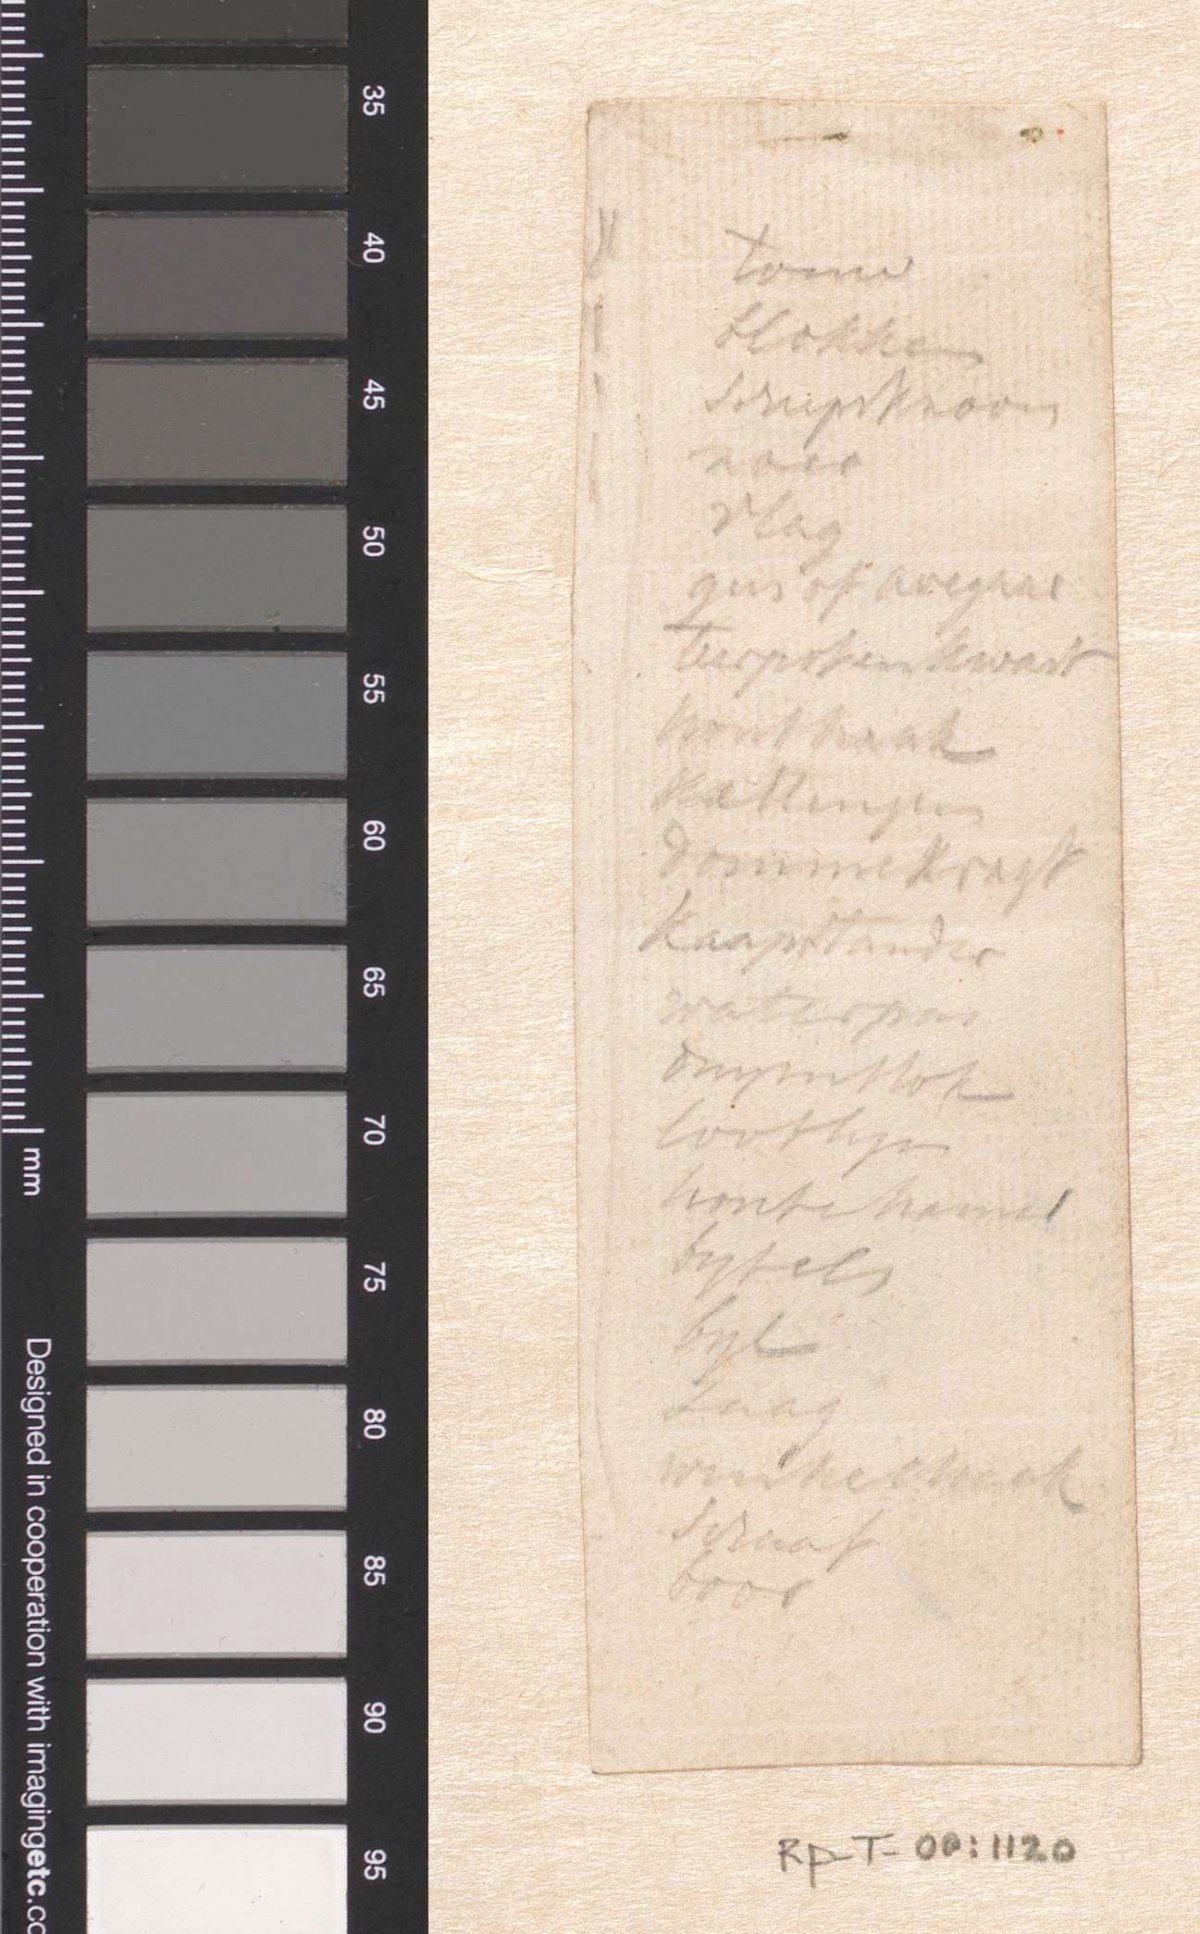 35
40
45
50
55
60
65
70
75
80
85
90
95
mm
Designed in cooperation with imagingetc.co
touw
blokken
vlag
gus of avegaar
teerpot en kwast
hout haak
kettingen
dommekragt
kaapstander
waterpas
duymstok
lootlyn
houte hamer
bytels
byl
zaag
winkelhaak
schaaf
boor
RP-T-00:1120